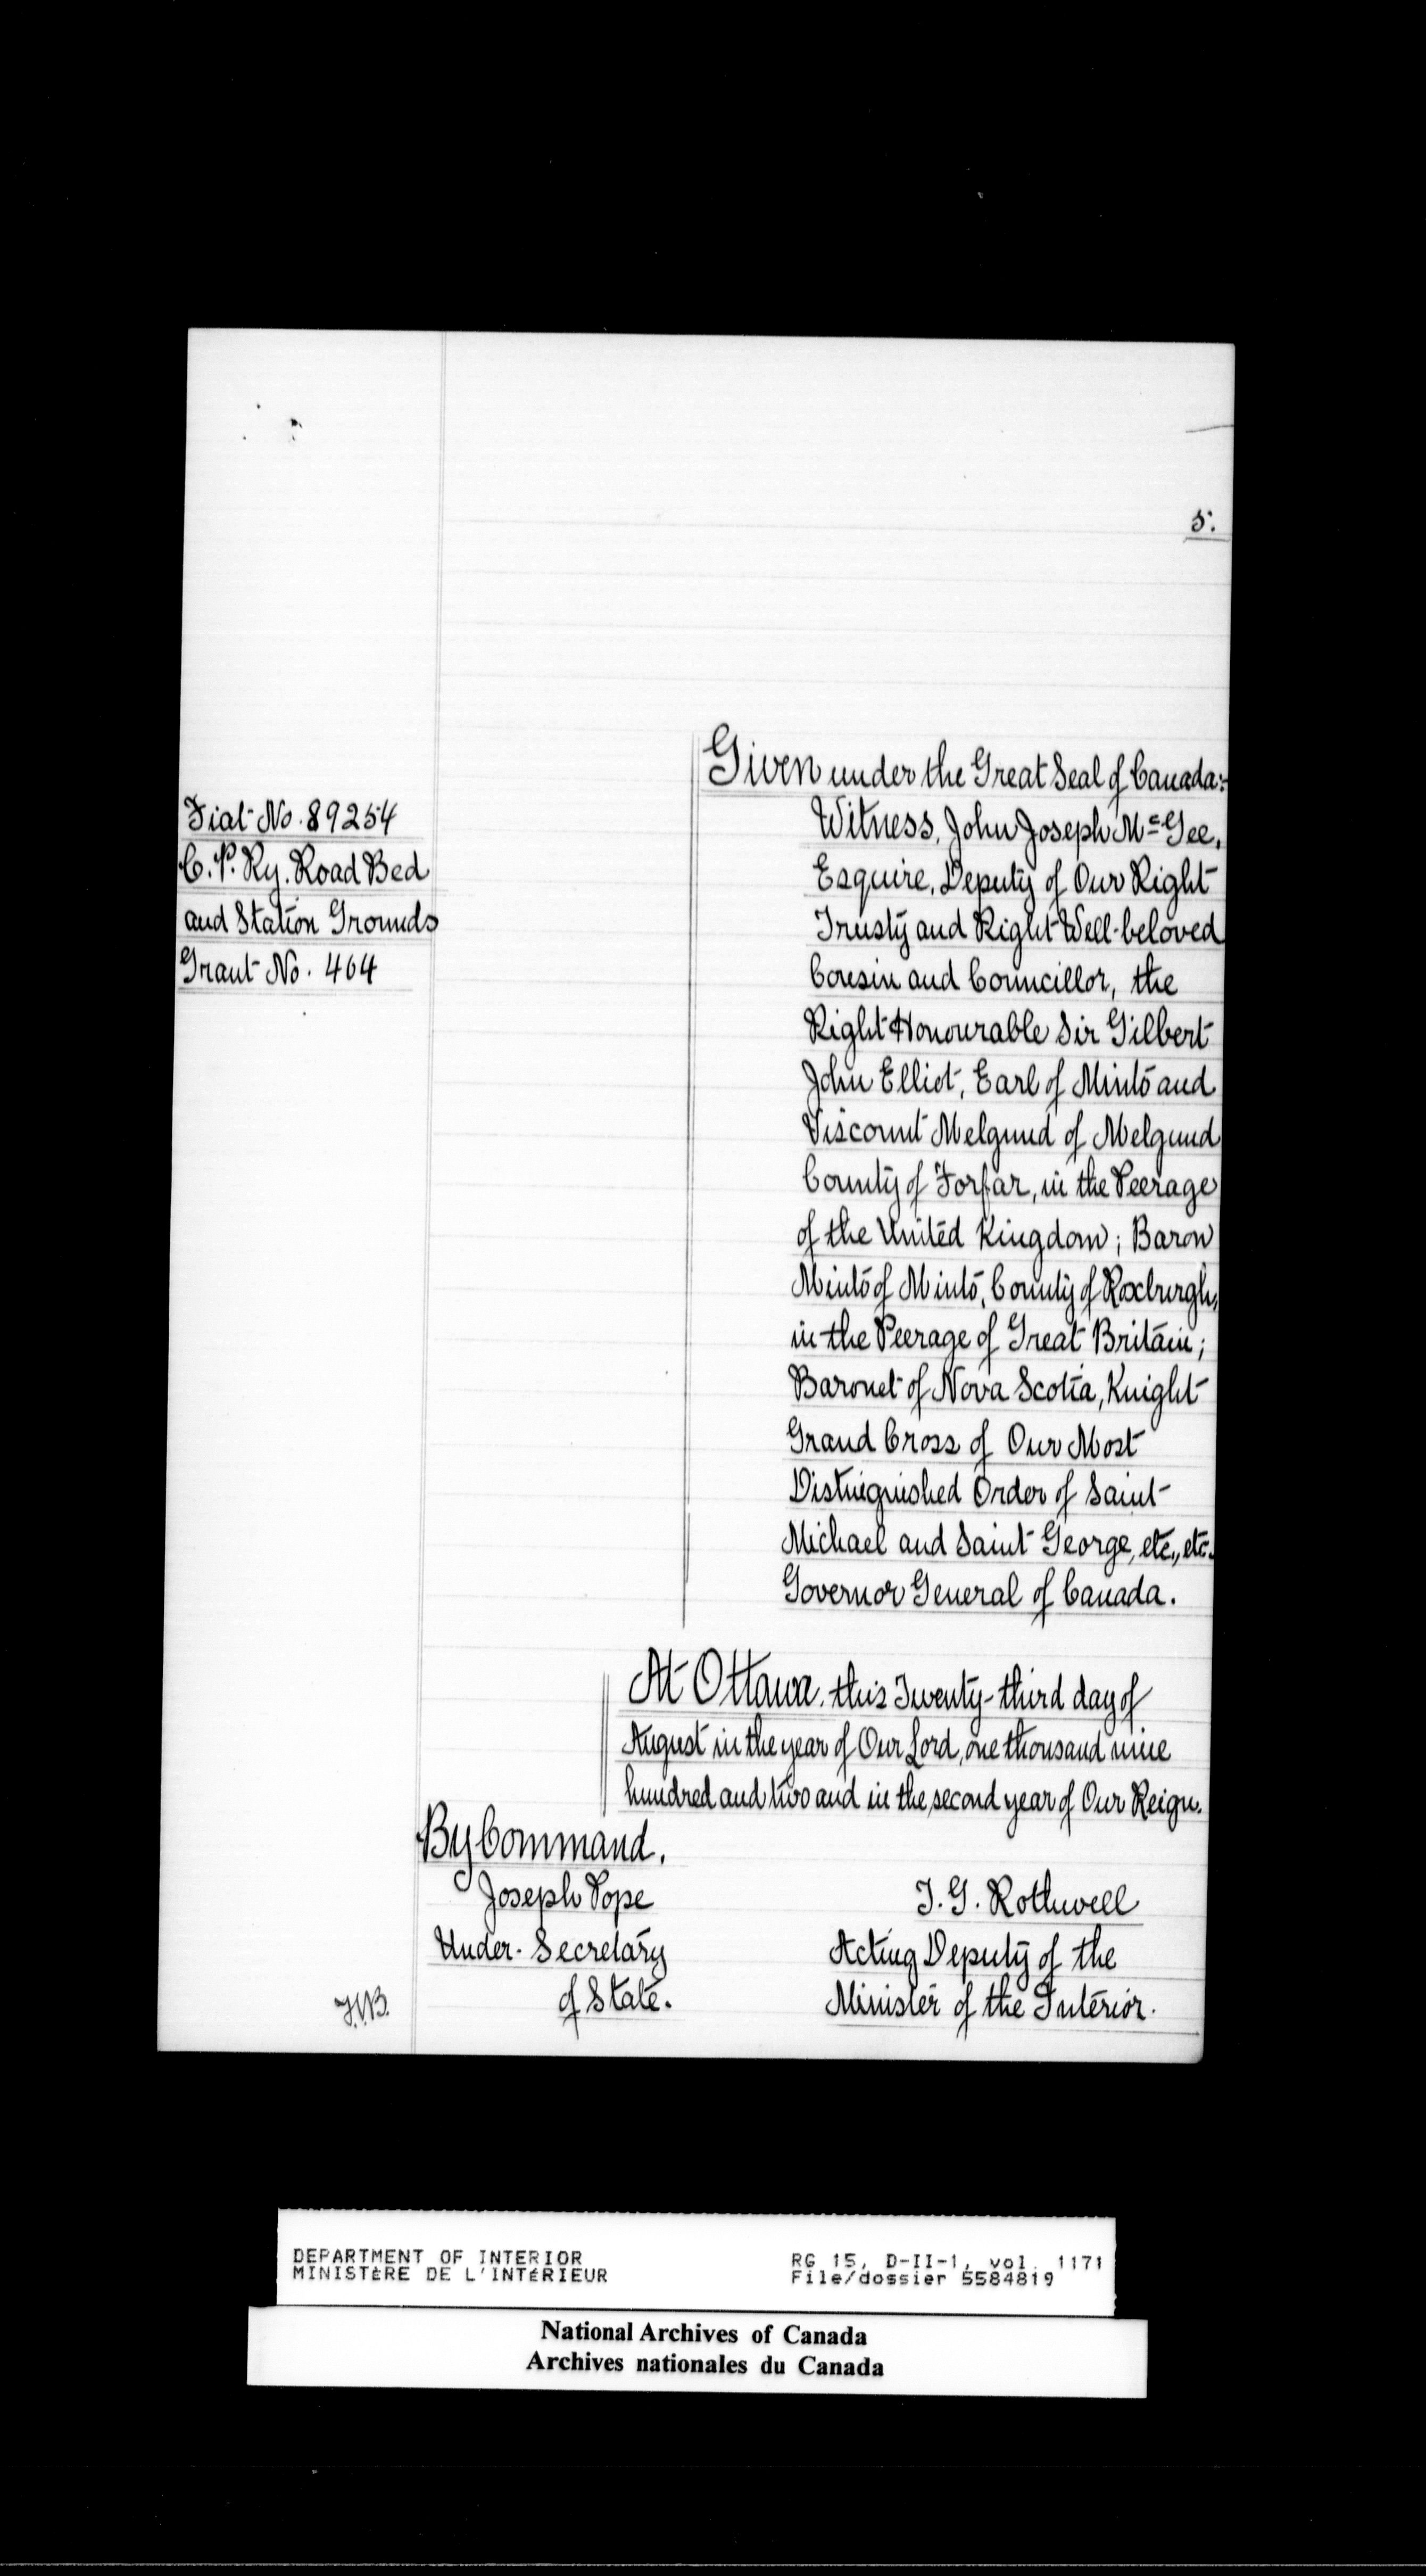 5.
Given under the Great Seal of Canada:-
Witness, John Joseph McGee,
Esquire, Deputy of Our Right
Trusty and Right Well-beloved
Cousin and Councillor, the
Right Honourable Sir Gilbert
John Elliot, Earl of Minto and
Viscount Melgund of Melgund
County of Forfar, in the Peerage
of the United Kingdom; Baron
Minto of Minto, County of Roxburgh,
in the Peerage of Great Britain;
Baronet of Nova Scotia, Knight
Grand Cross of Our Most
Distinguished Order of Saint
Michael and Saint George, etc., etc.
Governor General of Canada.
Fiat No. 89254
C.P. Ry. Road Bed
and Station Grounds
Grant No. 464
At Ottawa, this Twenty-third day of
August in the year of Our Lord, one thousand nine
hundred and two and in the second year of Our Reign.
By Command,
Joseph Pope
Under-Secretary
of State.
T. G. Rothwell
Acting Deputy of the
Minister of the Interior.
DEPARTMENT OF INTERIOR
MINISTÈRE DE L'INTÉRIEUR
RG 15, D-II-1, vol. 1171
File/dossier 5584819
National Archives of Canada
Archives nationales du Canada